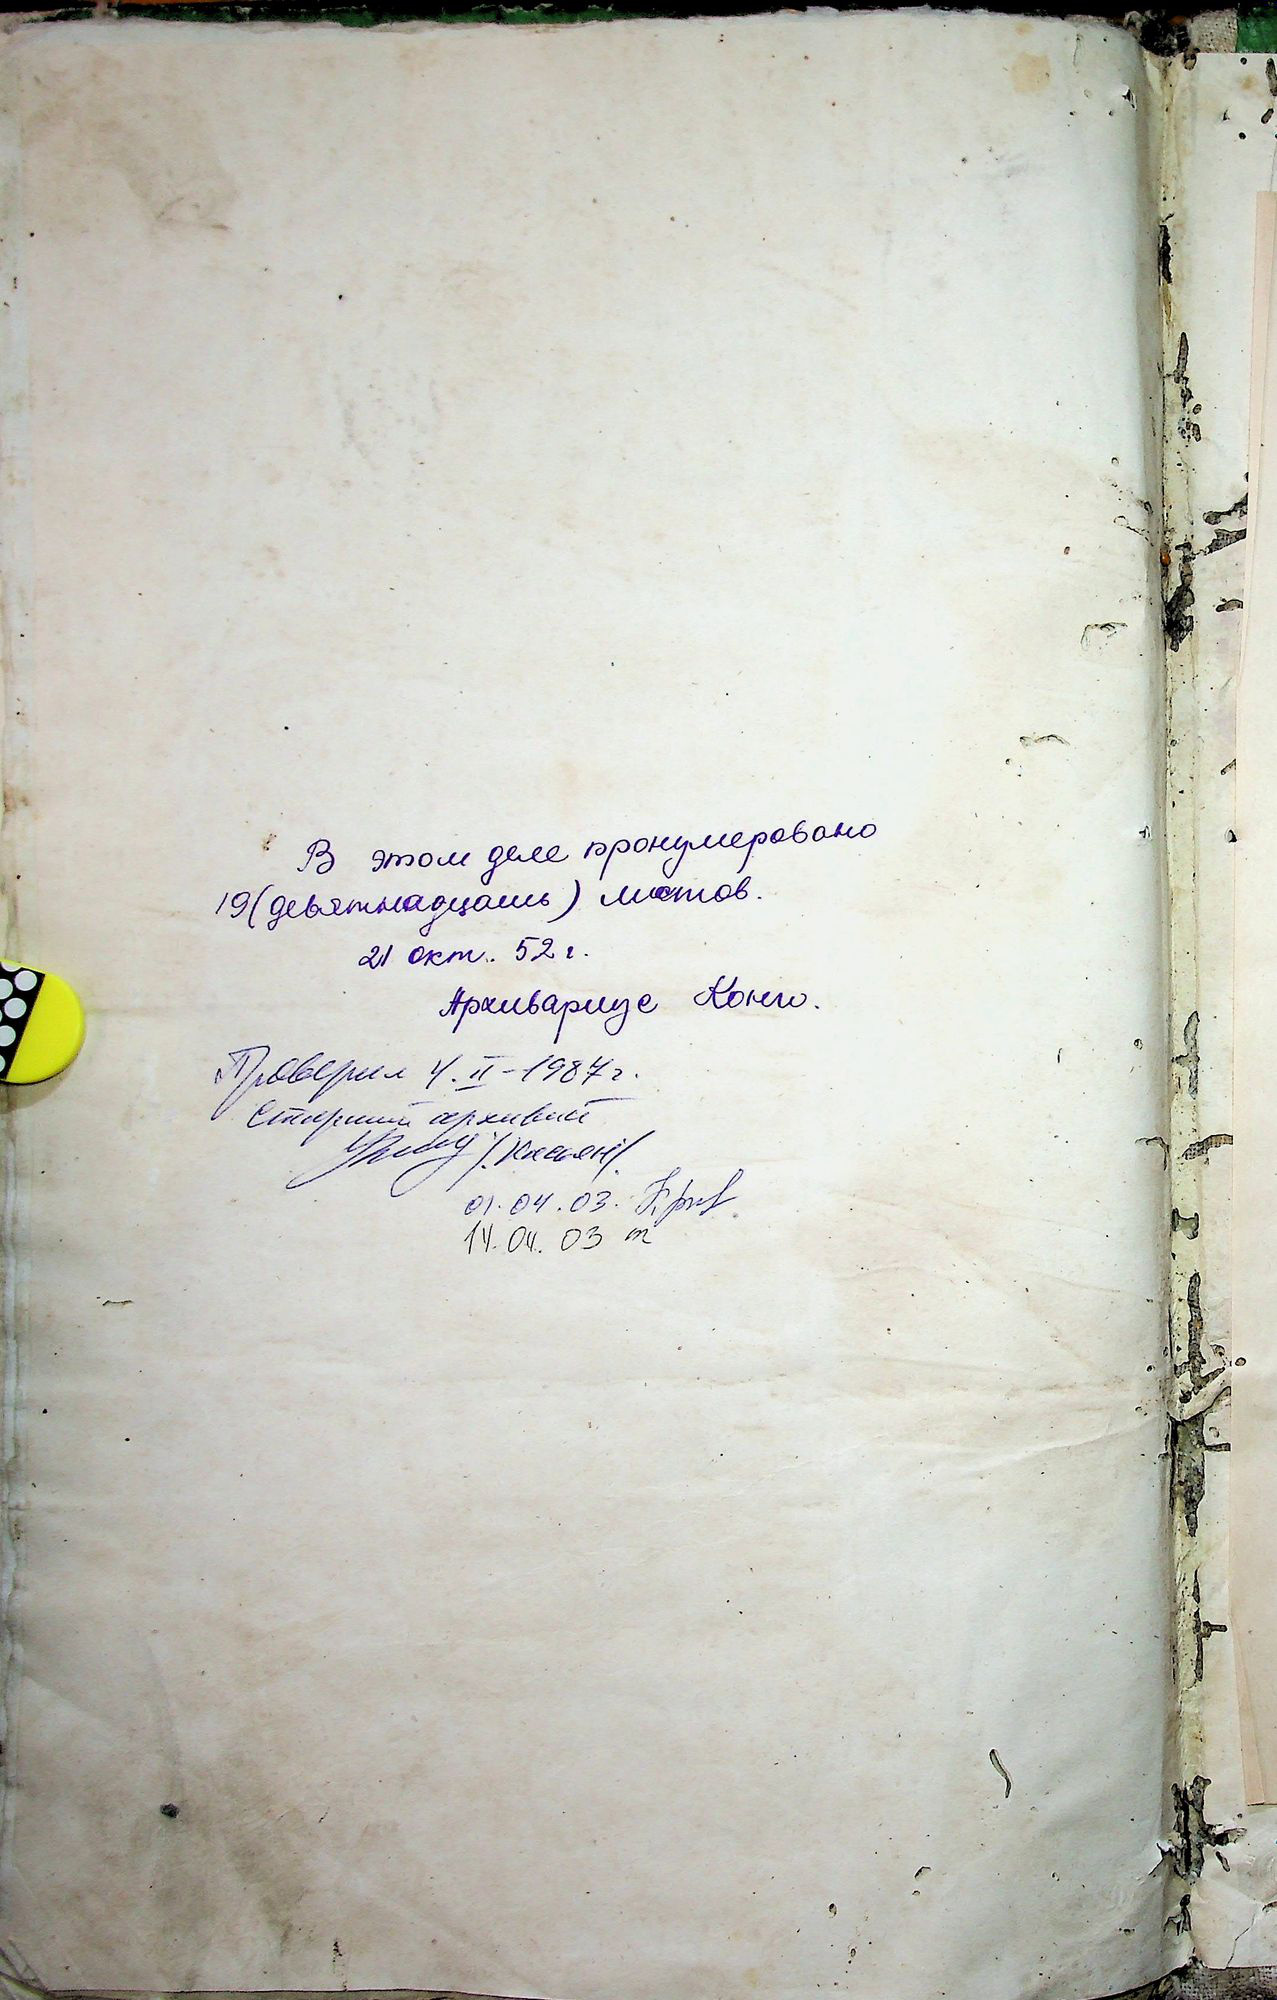 В этом деле пронумеровано
19 (девятнадцать) листов.
21 окт. 52 г.
Архивариус
Проверил 4. II - 1987 г.
Старший архивист
/Касьян/.
01.04.03.
14.04.03